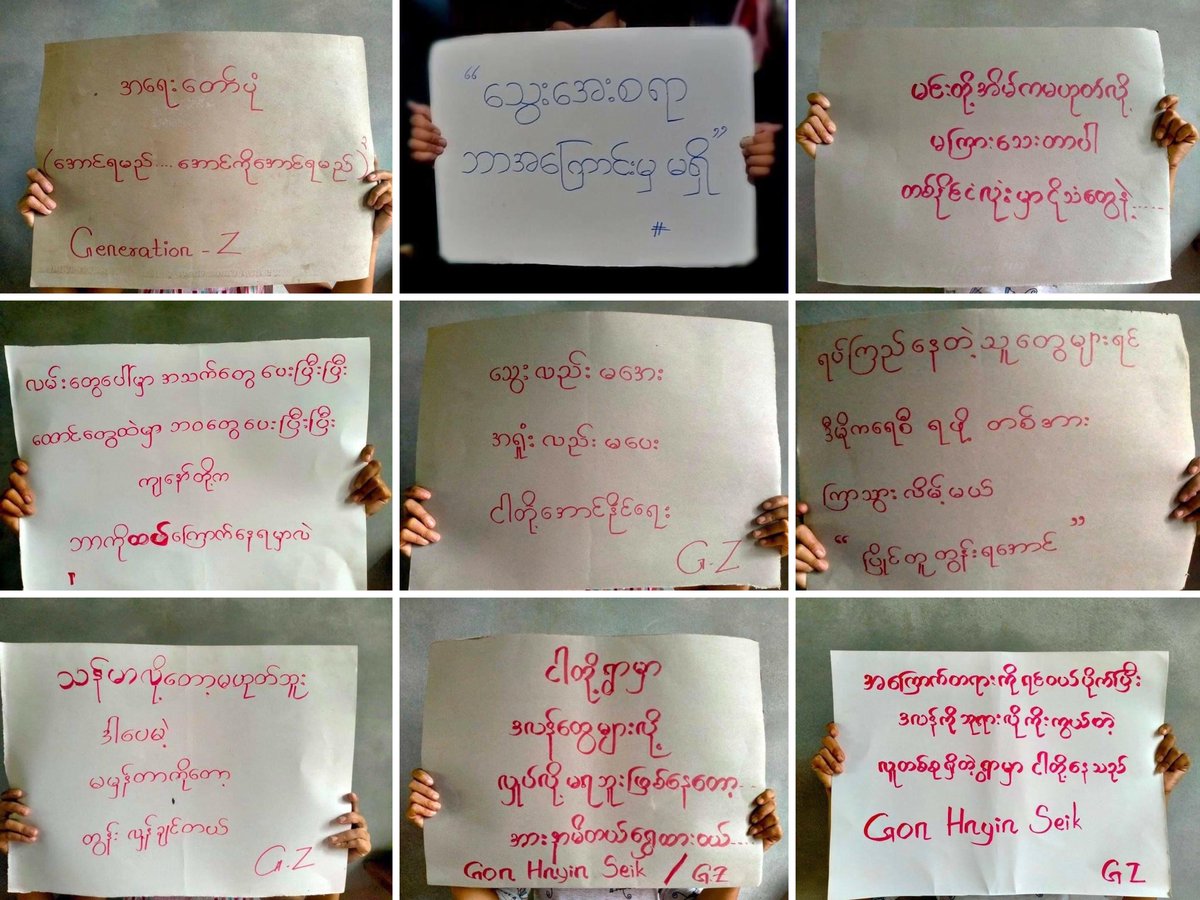 အရေးတော်ပုံ
(အောင်ရမည်.... အောင်ကိုအောင်ရမည်)
Generation - Z
“သွေးအေးစရာ
ဘာအကြောင်းမှ မရှိ”
#
မင်းတို့အိမ်ကမဟုတ်လို့
မကြားသေးတာပါ
တစ်နိုင်ငံလုံးမှာငိုသံတွေနဲ့.....
လမ်းတွေပေါ်မှာ အသက်တွေ ပေးပြီးပြီ
ထောင်တွေထဲမှာ ဘဝတွေ ပေးပြီးပြီ
ကျနော်တို့က
ဘာကိုထပ်ကြောက်နေရမှာလဲ
သွေး လည်း မအေး
အရှုံး လည်း မပေး
ငါတို့အောင်နိုင်ရေး
G.Z
ရပ်ကြည်နေတဲ့ သူတွေများရင်
ဒီမိုကရေစီ ရဖို့ တစ်အား
ကြာသွားလိမ့်မယ်
“ပြိုင်တူတွန်းရအောင်”
သန်မာလို့တော့မဟုတ်ဘူး
ဒါပေမဲ့
မမှန်တာကိုတော့
တွန်းလှန်ချင်တယ်
G.Z
ငါတို့ရွာမှာ
ဒလန်တွေများလို့
လှုပ်လို့ မရဘူးဖြစ်နေတော့...
အားနာမိတယ်ရွှေထားဝယ်....
Gon Hnyin Seik / GZ
အကြောက်တရားကိုရင်ဝယ်ပိုက်ပြီး
ဒလန်ကိုဘုရားလိုကိုးကွယ်တဲ့
လူတစ်စုရှိတဲ့ရွာမှာ ငါတို့နေသည်
Gon Hnyin Seik
GZ